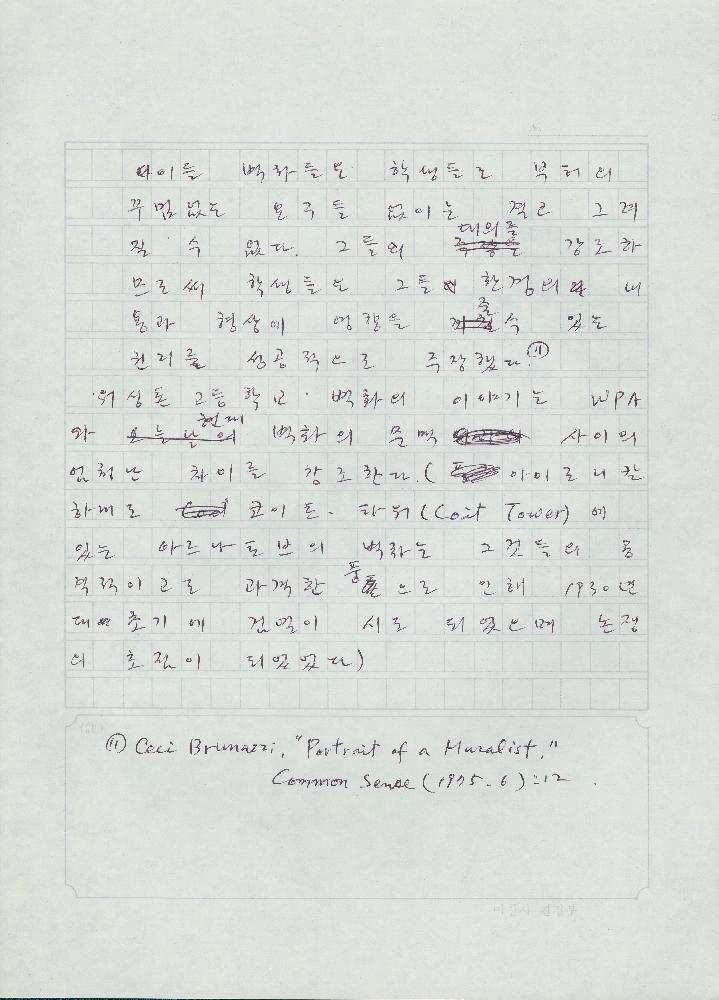 벽화들도 학생들로 부터의
꾸밈없는 요구들 없이는 결코 그려
질 수 없다. 그들의 대의를 강조하
므로써 학생들도 그들 환경의 내
용과 형상에 영향을 줄 수 있는
권리를 성공적으로 주장했다.⑪
'워싱톤 고등학교' 벽화의 이야기는 WPA
와 현대 벽화의 문맥 사이의
엄청난 차이를 강조한다.( 아이로니칼
하게도 코이트. 타워(Coit Tower)에
있는 아르나토프의 벽화는 그것들의 풍
격적이고도 과격한 풍 으로 인해 1930년
대 초기에 검열이 시도 되었으며 논쟁
의 초점이 되었었다)
⑪ Ceci Brunazzi, "Portrait of a Muralist,"
Common Sense (1975. 6) : 12.